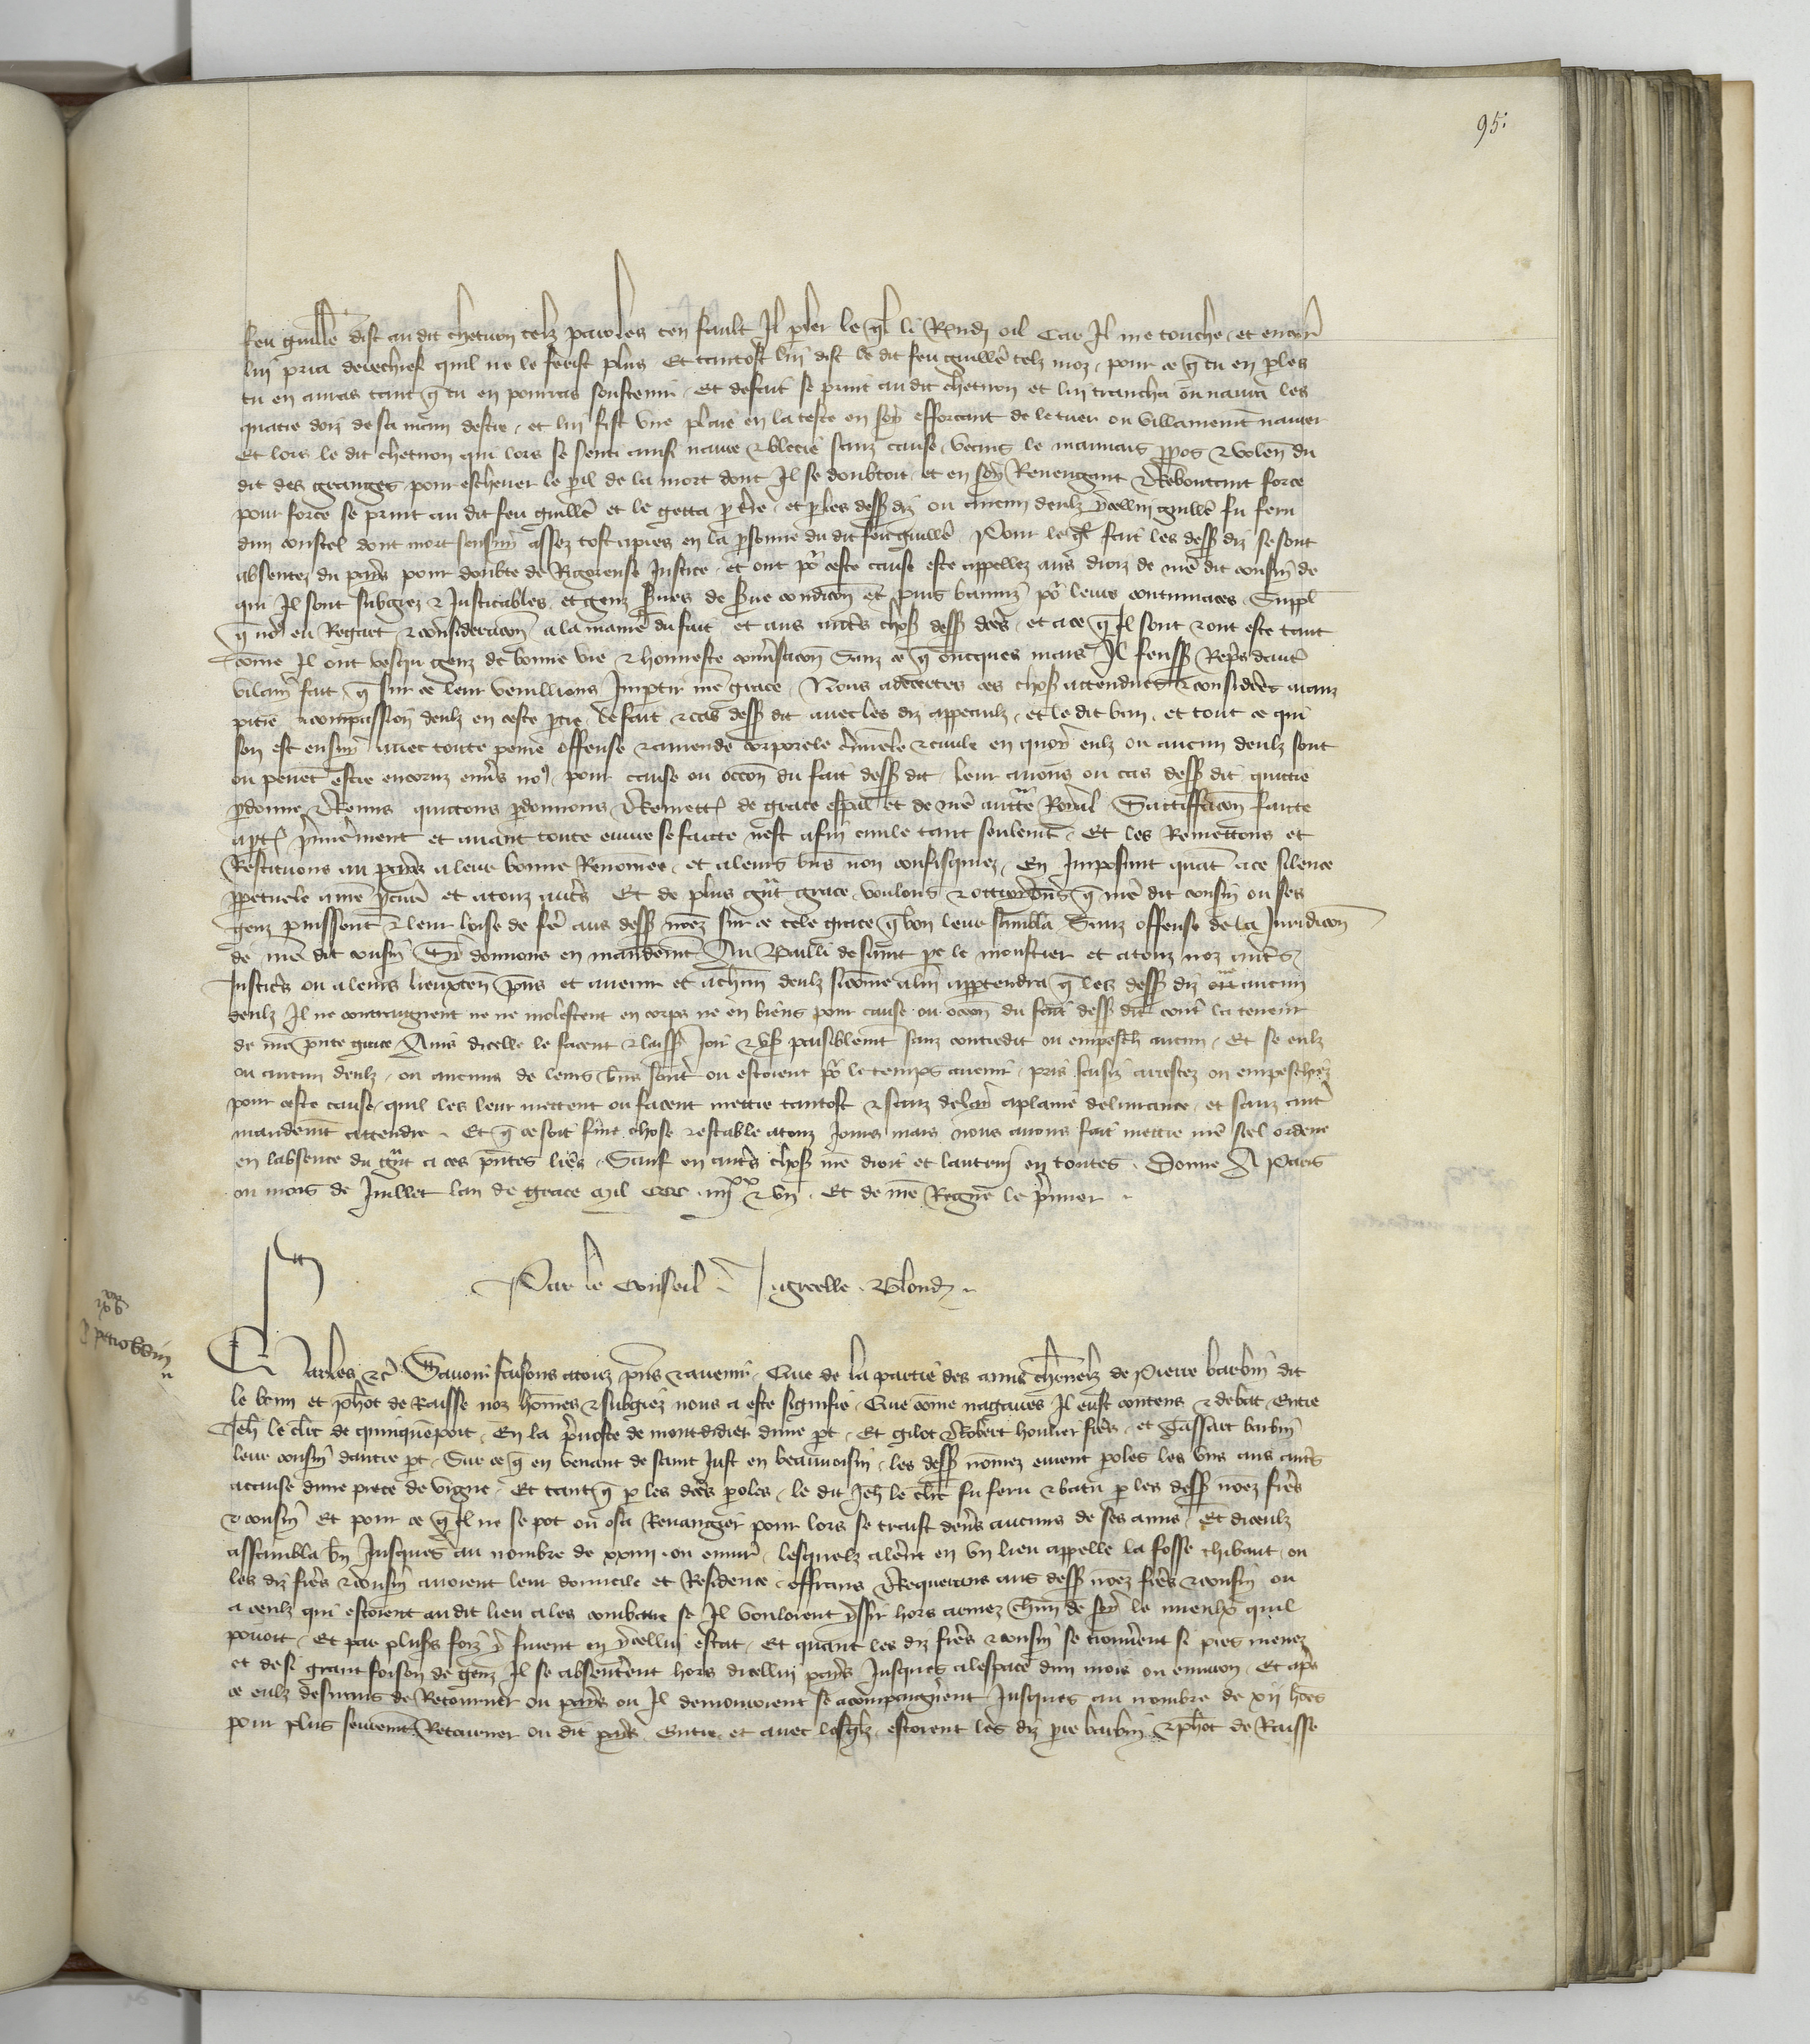 95.
feu guillē dist au dit chetuon telz paroles ten fault Il pler le ql̄ li Rendi oil Car Il me touche et encor
lui pria derechief quil ne le ferist plus Et tantost lui dist le dit feu guillē telz moz pour ce q̄ tu en ples
tu en auras tant q̄ tu en pourras soustenir Et de fait se print au dit chetuon et lui trancha ou naura les
quatre doiz de sa main destre et lui fist vne plaie en la teste en soy efforcant de le tuer ou villainemēt naurer
Et lors le dit chetuon qui lors se senti ainsi naure & blecie sanz cause veans le mauuais ppos & volen du
dit des granges pour escheuer le pil de la mort dont Il se doubtoit et en soy Reuengant & Reboutant force
pour force se print au dit feu guillē et le getta p tre et ples dess diz ou aucun deulz ycellui guillē fu feru
dun coustel dont mort sensui assez tost apres en la psonne du dit feu guillē Pour le ql̄ fait les dess diz se sont
absentez du pays pour doubte de Rigoreuse Justice et ont pͦ ceste cause este appellez aus droiz de nrē dit cousin de
qui Il sont subgiez & Justicables et genz sues de sue condicōn et puis banniz pͦ leurs contumaces Suppl
q̄ nous eu Regart & consideracōn a la maniē du fait et aus autˢ chos dess dcēs et a ce q̄ Il sont & ont este tant
cōme Il ont vesqu genz de bonne vie & honneste conūsacōn Sanz ce q̄ oncques mais Il feuss Rep̄s dautre
vilain fait q̄ sur ce leur veuillions Impartir nrē grace Nous adecertes ces chos attendues & considerees aians
pitie & compassion deulz en ceste ptie le fait & cas dess dit auec les diz appeaulz et le dit ban et tout ce qui
sen est ensuy auec toute peine offense & amende corporele cīmele & ciuile en quoy eulz ou aucun deulz sont
ou peuēt estre encoruz enūs noˢ pour cause ou occōn du fait dess dit leur auons ou cas dess dit quittie
pdonne & Remis quittons pdonnons & Remett de grace espal et de nrē auctte Royal Satiffacōn faicte
a ptͥ pmieremēt et auant toute euure se faicte nest afin ciuile tant seulemēt Et les Remettons et
Restituons au pays a leur bonne Renomee et a leurs biēs non confisquiez En Imposant quant a ce silence
ppetuele a nrē pcūr et a touz autˢ Et de plus gnͣt grace voulons & ottroiōns q̄ nrē dit cousin ou ses
genz puissent & leur loise de fē aus dess nōez sur ce tele grace q̄ bon leur sembla Sanz offense de la Juridicōn
de nrē dit cousin Si donnons en mandemēt Au Bailli de saint pe le monstier et a touz noz autˢ
Justicˢ ou a leurs lieuxten pns et auenir et a chūn deulz sicōme a lui appartendra q̄ les dess diz ou aucun
deulz Il ne contraignent ne ne molestent en corps ne en biens pour cause ou occōn du fait dess dit contͤ la teneur
de nrē pnte grace Ains dicelle le facent & laiss Joir & vs paisiblemēt sanz contredit ou empesch aucun Et se eulz
ou aucun deulz ou aucuns de leurs bns sont ou estoient pͦ le temps auenir pris saisiz arrestez ou empeschiez
pour ceste cause quil les leur mettent ou facent mettre tantost & sanz delay a plaine deliurance et sanz autͤ
mandemēt attendre Et q̄ ce soit fme chose & estable a touz Jours mais nous auons fait mettre nrē seel ordene
en labsence du gnͣt a ces pntes lres Sauf en autˢ chos nrē droit et lautruy en toutes Donne A Paris
ou mois de Juillet lan de grace mil ccc iiijxx & vn Et de nrē Regne le pmier
Par le Conseil Jagreelle Blondͥ
Charles &c Sauoir faisons a touz pns & auenir Que de la partie des amis chūelz de Pierre barbin dit
le brun et phot de Raisse noz hōmes & subgiez nous a este signifie Que cōme nagaires Il eust contens & debat Entre
Jeh le clit de quinquēpoit En la puoste de montdidier dune pt Et gilot & Robert houlier freres et Tassart barbin
leur cousin dautre pt Sur ce q̄ en venant de saint Just en beauuoisin les dess nōmez eurent poles les vns aus autˢ
a cause dune piece de vigne Et tant q̄ p les dcēs poles le dit Jeh le clit fu feru & batu p les dess nōez freres
& cousin Et pour ce q̄ Il ne se pot ou osa Reuanger pour lors se traist deūs aucuns de ses amis Et diceulz
assambla bn Jusques au nombre de xxiiii ou enuir lesquelz alerēt en vn lieu appelle la fosse thibaut ou
les diz freres & cousin auoient leur domicile et Residence offrans & Requerans aus dess nōez freres & cousin ou
a ceulz qui estoient au dit lieu a les combatre se Il vouloient yssir hors armez chūn de soy le mieulx quil
pouoit Et par pluss foiz y furent en ycellui estat Et quant les diz freres & cousin se trouuerēt si pres menez
et de si grant foison de genz Il se absenterent hors dicellui pays Jusques a lespace dun mois ou enuiron Et aps
ce eulz desirans de Retourner ou pays ou Il demouroient se acompaignerēt Jusques au nombre de xij hōes
pour plus seuremēt Retourner ou dit pays Entre et auec lesqlz estoient les diz pre barbin & phot de Raisse